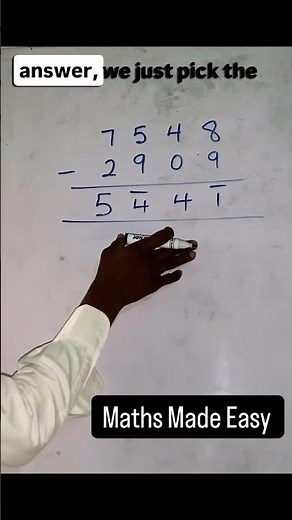 answer, we just pick the
7 5 4 8
- 2 9 0 9
5 4̅ 4 1̅
Maths Made Easy